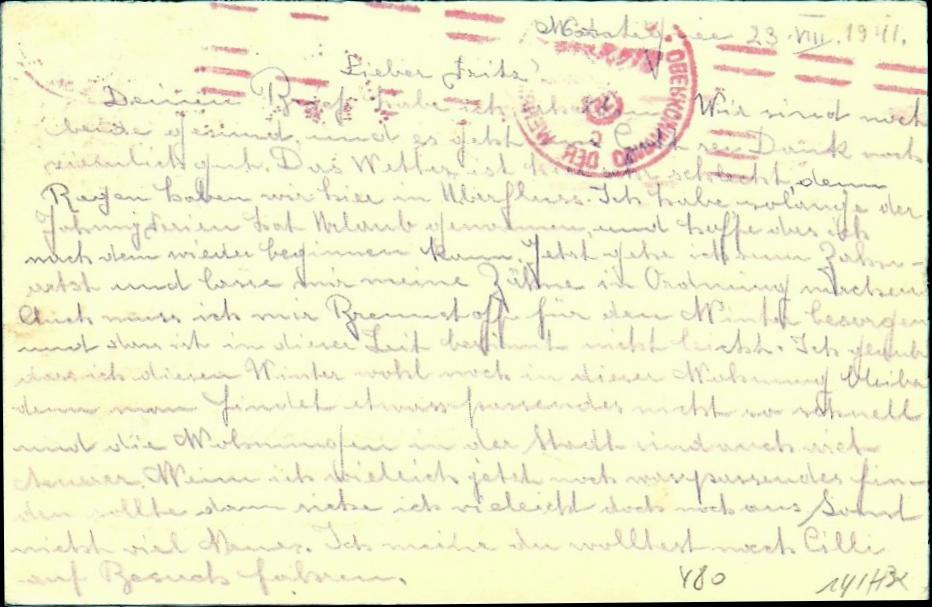 23. VIII. 1941.
Lieber Fritz!
OBERKOMMANDO DER WEHR
Deinen Brief habe ich erhalten. Wir sind noch
beide gesund und es geht Gott sei Dank noch
ziemlich gut. Das Wetter ist hier sehr schlecht, denn
Regen haben wir hier in Überfluss. Ich habe solange der
Ferien hat Urlaub genommen, und hoffe das ich
nach dem wieder beginnen kann. Jetzt gehe ich zum Zahn-
artzt und lasse mir meine Zähne in Ordnung machen
Auch muss ich mir Brennstoff für den Winter besorgen
und das ist in dieser Zeit bestimmt nicht leicht. Ich glaub
dass ich diesen Winter wohl noch in dieser Wohnung bleibe
denn man findet etwas passendes nicht so schnell
und die Wohnungen in der Stadt sind auch viel
teurer. Wenn ich vieleich jetzt noch was passendes fin-
den sollte dann ziehe ich vieleicht doch noch aus. Sonst
nicht viel Neues. Ich meine du wolltest nach Cilli
auf Besuch fahren.
Y80